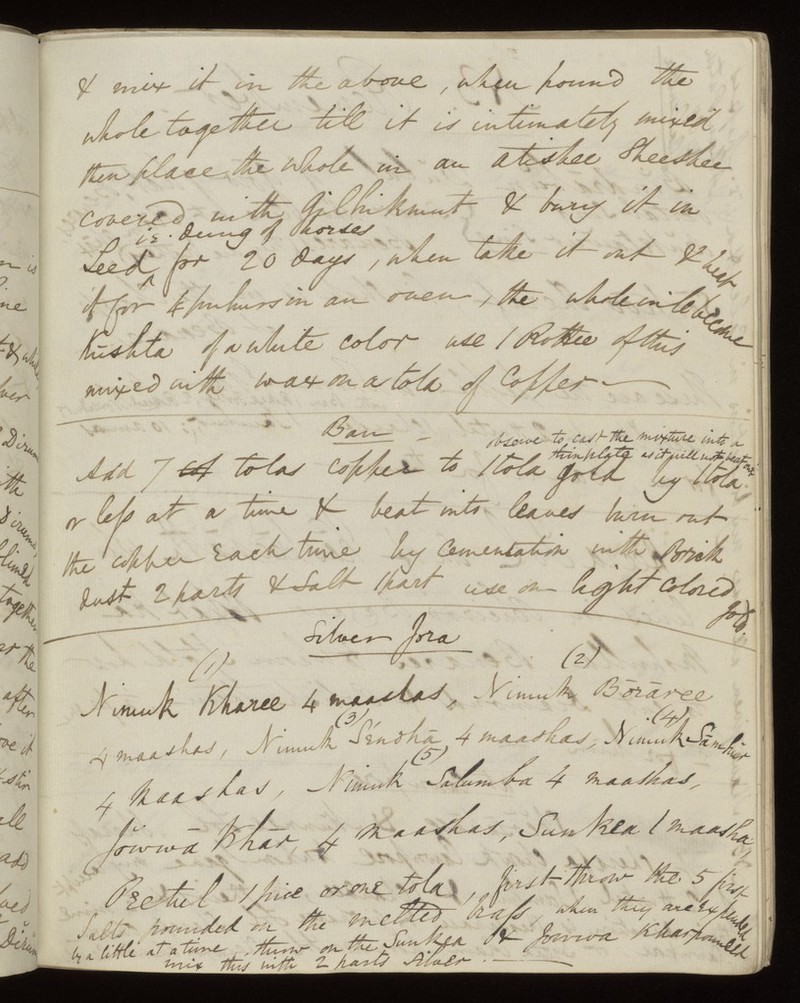 & mix it in the above, when pound the
whole together till it is intimately mixed
then place the whole in an atishee Sheeshee
covered with Gilhikmut & bury it in
i.e. dung of horses
Leed for 20 days, when take it out & heat
it for 4 puhurs in an oven, the whole will become
Kushta of a white color use 1 Rottee of this
mixed with wax on a tola of Copper
Ban
observe to cast the mixture into a
thin plate as it will not beat out
Add 7 tolas copper to 1 tola gold by 1 tola
or less at a time & beat into leaves burn out
the copper each time by Cementation with Brick
dust 2 parts & Salt 1 part use on light colored
gold.
Silver Jora
(1) (2)
Nimuk Kharee 4 maashas, Nimuk Borāree
(3) (4)
4 maashas, Nimuk Sendhā 4 maashas, Nimuk Sāmbhir
(5)
4 Maashas, Nimuk Salumba 4 maashas,
Jowwā Khār 4 Maashas, Sunkea 1 maasha,
Peetul 1 pice or one tola, first throw the 5 first
Salts pounded on the melted brass, when they are expended
by a little at a time throw on the Sunkea & Jowwa Khar pounded
mix this with 2 parts silver.